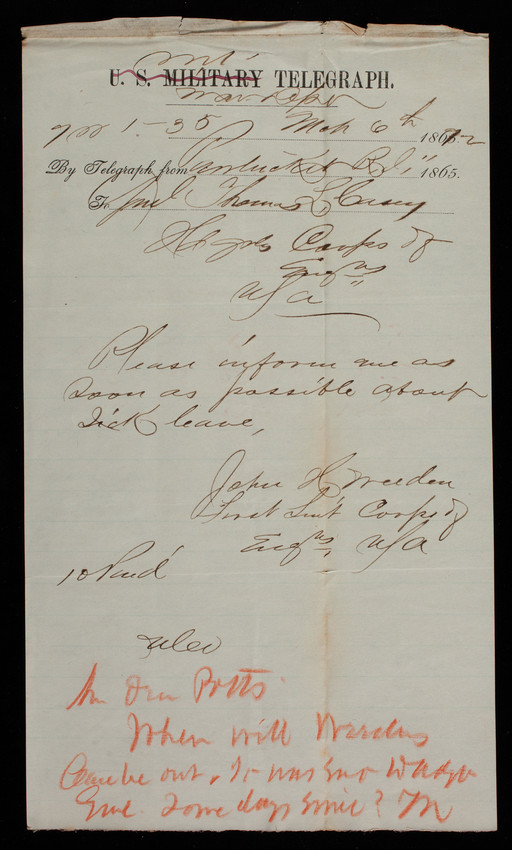 U. S. MILITARY TELEGRAPH.
War Dept
1-35 Mch 6th 1872
By Telegraph from Pawtucket R.I. " 1865.
To Genl Thomas L Casey
Hd qrs Corps of
Engrs
USA
Please inform me as
soon as possible about
sick leave,
John H Weeden
First Lieut Corps of
Engrs, USA
10 Paid
Dear Potts
When will Weedens
be out. It was
Genl. some days since? M